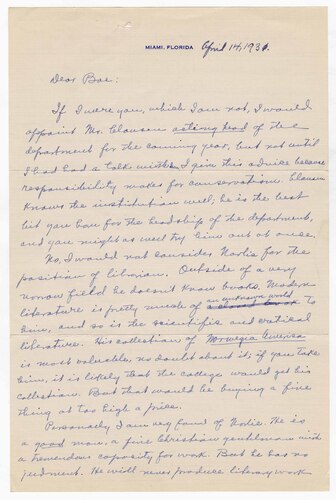 MIAMI, FLORIDA April 14, 1930.
Dear Boe:
If I were you, which I am not, I would
appoint Mr. Clausen acting head of the
department for the coming year, but not until
I had had a talk with him. I give this advice because
responsibility makes for conservatism. Clausen
knows the institution well; he is the best
bet you have for the headship of the department,
and you might as well try him out at once.
No, I would not consider Norlie for the
position of librarian. Outside of a very
narrow field he doesn't know books. Modern
literature is pretty much of an unknown world to
him, and so is the scientific and critical
literature. His collection of Norwegian Americana
is most valuable, no doubt about it; if you take
him, it is likely that the college would get his
collection. But that would be buying a fine
thing at too high a price.
Personally I am very fond of Norlie. He is
a good man, a fine Christian gentleman with
a tremendous capacity for work. But he has no
judgment. He will never produce literary work